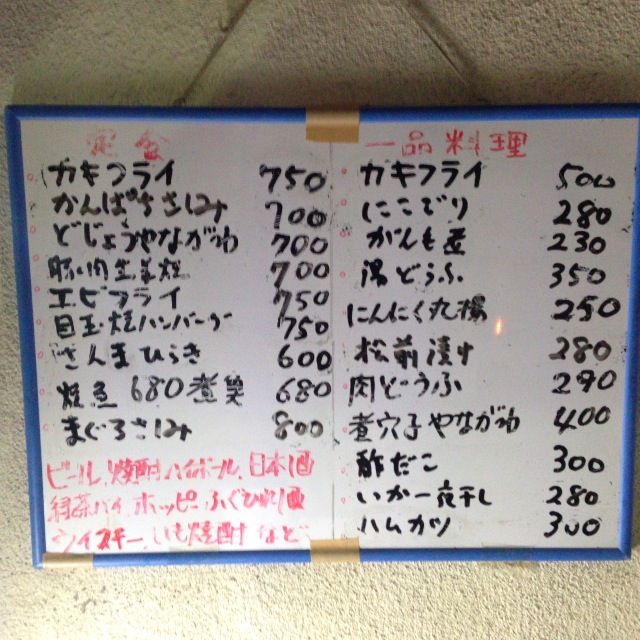 定食
カキフライ 750
かんぱちさしみ 700
どじょうやながわ 700
豚肉生姜焼 700
エビフライ 750
目玉焼ハンバーグ 750
さんまひらき 600
焼魚 680 煮魚 680
まぐろさしみ 800
ビール、焼酎ハイボール、日本酒
緑茶ハイ ホッピー ふぐひれ酒
ウイスキー、いも焼酎 など
一品料理
カキフライ 500
にこごり 280
がんも煮 230
湯どうふ 350
にんにく丸揚 250
松前漬け 280
肉どうふ 290
煮穴子やながわ 400
酢だこ 300
いか一夜干し 280
ハムカツ 300